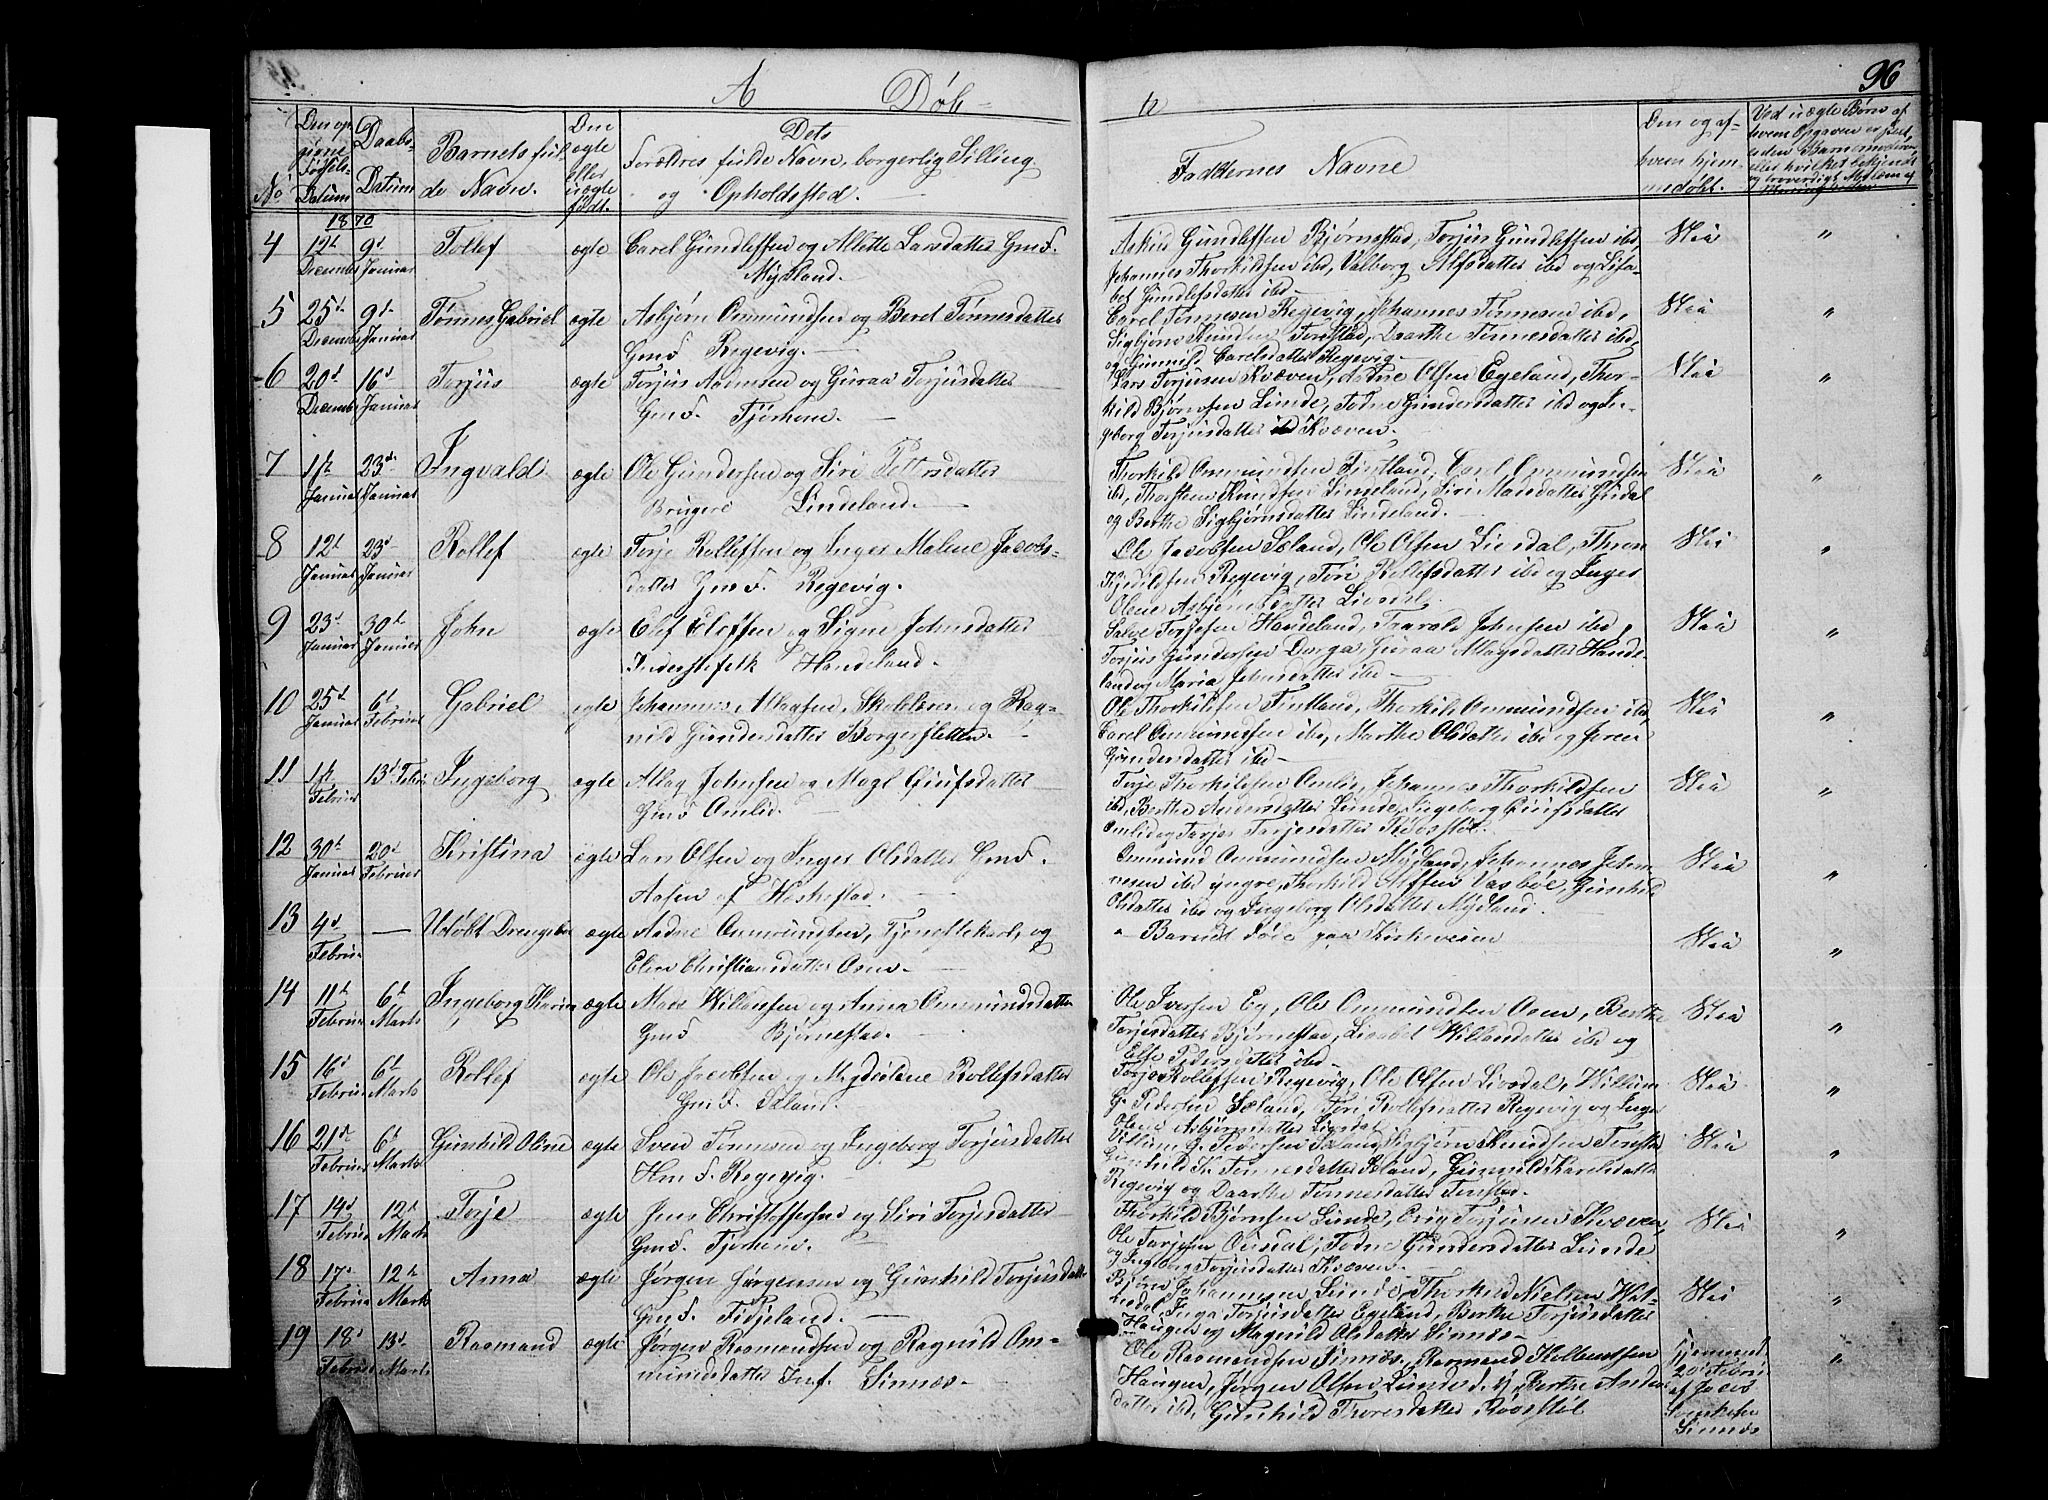 A Døb-
te
96
No
Den op-
givne
Fødsels-
Datum
Daabs-
Datum
Barnets ful-
de Navn.
Om
ægte
eller
uægte
født.
Dets
Forældres fulde Navn, borgerlig Stilling
og Opholdssted.
Faddernes Navne
Om og af
hvem hjem-
medøbt.
Ved uægte Børn af
hvem Opgaven er
1870
4 12t December 9d Januar Tollef ægte Carel Gundleffen og Allette Larsdatter Gmf.
Mydland.
Askild Gundleffen Bjørnestad, Torjus Gundleffen ibd,
Johannes Thorkildsen ibd, Valborg Alfsdatter ibd og Lisa-
bet Gundlefsdatter ibd.
Nei "
5 25d December 9d Januar Tønnes Gabriel ægte Asbjørn Ommundsen og Beret Tønnesdatter
Gmf Regevig.
Carel Tønnesen Regevig, Johannes Tønnesen ibd,
Sigbjørn Knudsen Tonstad, Daarthe Tønnesdatter ibd,
og Gunnild Carelsdatter Regevig.
Nei "
6 20d December 16d Januar Torjus ægte Torjus Aadnesen og Guraa Torjusdatter
Gmf. Tjørhom.
Lars Torjusen Kvæven, Aadne Olsen Egeland, Thor-
kild Bjørnsen Lunde, Todne Gundersdatter ibd og In-
geborg Torjusdatter Kvæven.
Nei "
7 1st Januar 23d Januar Ingvald ægte Ole Gundersen og Siri Pettersdatter
Brugere Lindeland.
Thorkild Ommundsen Fintland, Carel Ommundsen
ibd, Thorsten Knudsen Lindeland, Siri Madsdatter
og Berthe Sigbjørnsdatter Lindeland.
Nei "
8 12t Januar 23d Januar Rollef ægte Torje Rolleffen og Inger Malene Jacobs-
datter Gmf. Regevig.
Ole Jacobsen Seland, Ole Olsen Liesdal, Thron
Regevig, Tori Rollefsdatter ibd og Inger
Olene Asbjørnsdatter Liesdal.
Nei "
9 23d Januar 30t Januar John ægte Olef Oleffen og Signe Johnsdatter
Inderstefolk Handeland.
Salve Torjesen Handeland, Tarald Johnsen ibd,
Torjus Gundersen Dorga, Guraa Atlagsdatter Hande-
land og Maria Johnsdatter ibd.
Nei "
10 25d Januar 6t Februar Gabriel ægte Johannes Atlagsen, Skolelærer og Rag-
nild Gundersdatter Borgersletten.
Ole Thorkildsen Fintland, Thorkild Ommundsen ibd,
Carel Ommundsen ibd, Marthe Olsdatter ibd og Joren
Gundersdatter ibd.
Nei "
11 1st Februar 13d Febr Ingeborg ægte Atlag Johnsen og Magl datter
Gmf Omlid.
Torje Thorkildsen Omlid, Johannes Thorkildsen
ibd, Berthe datter Lunde, Ingeborg datter
Omlid og Torjesdatter
Nei "
12 30t Januar 20d Februar Kristina ægte Lars Olsen og Inger Olsdatter Gmf.
Aasen af Heskestad.
Ommund Ommundsen Mydland, Johannes Johan-
nesen ibd yngre, Thorkild Vasbøe, Gunhild
Olsdatter ibd og Ingeborg Olsdatter Mydland.
Nei "
13 4d Februar — Udøbt Drengebarn ægte Aadne Ommundsen, Tjenestekarl, og
Elen Christiansdatter Osen.
" Barnet døde paa Kirkeveien
Nei "
14 11te Februar 6t Marts Ingeborg Karina ægte Mads Willumsen og Anna Ommundsdatter
Gmf Bjørnestad.
Ole Iversen Eg, Ole Ommundsen Osen, Berthe
Torjesdatter Bjørnestad, Lisabet Willumsdatter ibd og
Else Pedersdatter ibd.
Nei "
15 16d Februar 6t Marts Rollef ægte Ole Jacobsen og Magdelene Rollefsdatter
Gmf. Seland.
Torje Rolleffen Regevig, Ole Olsen Liesdal, Willum
G. Pedersen Seland, Tori Rollefsdatter Regevig og Inger
Olene Asbjørnsdatter Liesdal.
Nei "
16 21d Februar 6t Marts Gunhild Oline ægte Svend Tønnesen og Ingeborg Torjusdatter
Hmf. Regevig.
Villum G. Pedersen Seland, Sigbjørn Knudsen Tonstad
Gunhild K. Tønnesdatter Seland, Gunnild Karelsdatter
Regevig og Daarthe Tønnesdatter Tonstad.
Nei "
17 14d Februar 12t Marts Torje ægte Jens Christoffersen og Siri Torjusdatter
Gmf. Tjørhom.
Thorkild Bjørnsen Lunde, Erig Torjusen Kvæven,
Ole Torjesen Ousdal, Todne Gundersdatter Lunde
og Ingborg Torjusdatter Kvæven.
Nei "
18 17d Februar 12t Marts Anna ægte Jørgen Jørgensen og Gunhild Torjusdatter
Gmf. Fidjeland.
Bjørn Johannesen Lunde, Thorkild Nielsen
Inga Torjusdatter Egeland, Berthe Torjusdatter
Haugen og Magnild Olsdatter Sinnes.
Nei "
19 18d Februar 13d Marts Rasmund ægte Jørgen Rasmundsen og Ragnild Om-
mundsdatter Inf. Sinnes.
Ole Rasmundsen Sinnes, Rasmund
Haugen, Jørgen Olsen Lunde, Berthe Anders-
datter ibd, Gunhild Thoresdatter
hjemmed.
20d Februar
af Jacob
Sinnes
"